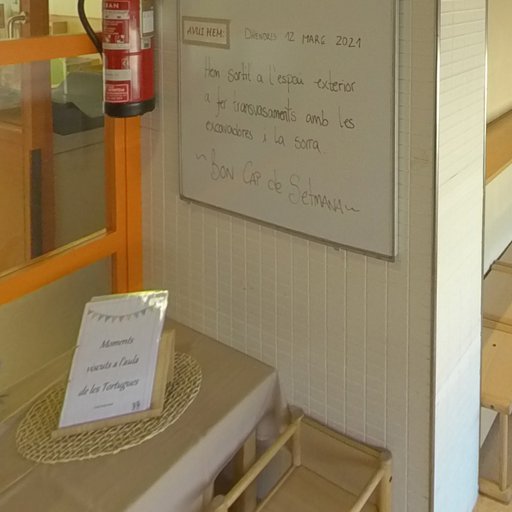 AVUI HEM:
DIVENDRES 12 MARÇ 2021
Hem sortit a l'espai exterior
a fer transvasaments amb les
excavadores i la sorra
~ BON CAP de SETMANA ~
Moments
viscuts a l'aula
de les Tortugues